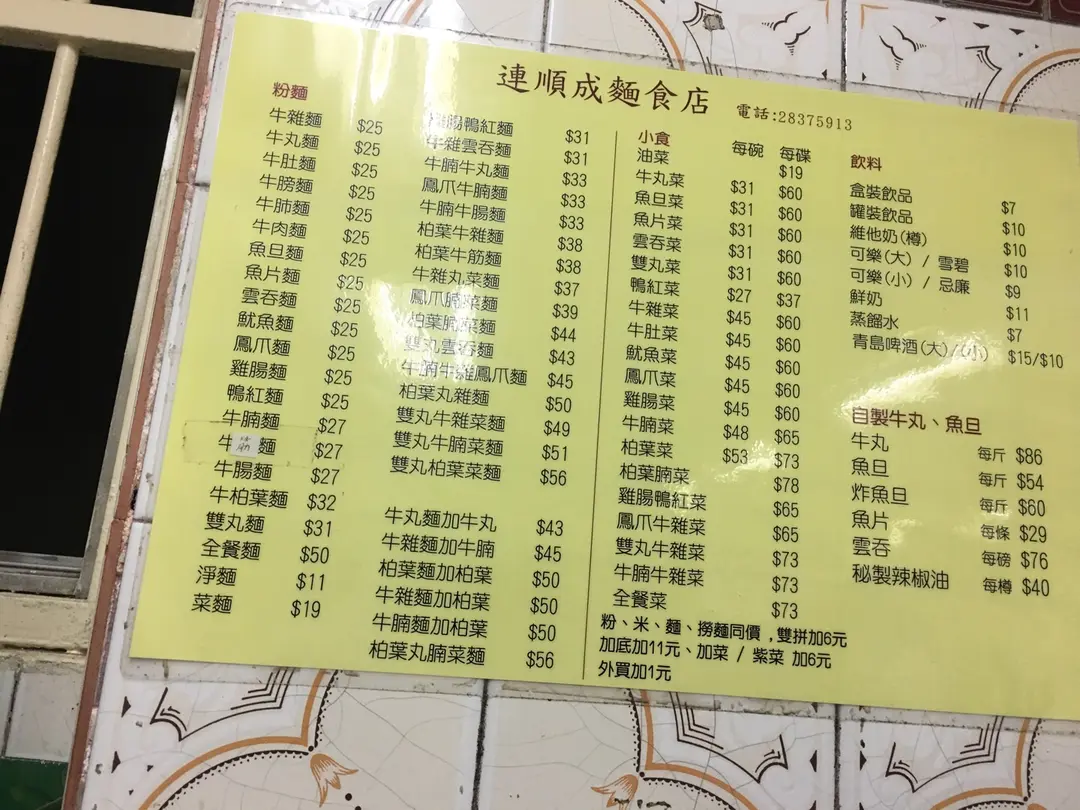 連順成麵食店 電話:28375913
粉麵
牛雜麵 $25
牛丸麵 $25
牛肚麵 $25
牛膀麵 $25
牛肺麵 $25
牛肉麵 $25
魚旦麵 $25
魚片麵 $25
雲吞麵 $25
魷魚麵 $25
鳳爪麵 $25
雞腸麵 $25
鴨紅麵 $25
牛腩麵 $27
牛筋麵 $27
牛腸麵 $27
牛柏葉麵 $32
雙丸麵 $31
全餐麵 $50
淨麵 $11
菜麵 $19
腸鴨紅麵 $31
牛雜雲吞麵 $31
牛腩牛丸麵 $33
鳳爪牛腩麵 $33
牛腩牛腸麵 $33
柏葉牛雜麵 $38
柏葉牛筋麵 $38
牛雜丸菜麵 $37
鳳爪腩菜麵 $39
柏葉腩菜麵 $44
雙丸雲吞麵 $43
牛腩牛雜鳳爪麵 $45
柏葉丸雜麵 $50
雙丸牛雜菜麵 $49
雙丸牛腩菜麵 $51
雙丸柏葉菜麵 $56
牛丸麵加牛丸 $43
牛雜麵加牛腩 $45
柏葉麵加柏葉 $50
牛雜麵加柏葉 $50
牛腩麵加柏葉 $50
柏葉丸腩菜麵 $56
小食 每碗 每碟
油菜 $19
牛丸菜 $31 $60
魚旦菜 $31 $60
魚片菜 $31 $60
雲吞菜 $31 $60
雙丸菜 $31 $60
鴨紅菜 $27 $37
牛雜菜 $45 $60
牛肚菜 $45 $60
魷魚菜 $45 $60
鳳爪菜 $45 $60
雞腸菜 $45 $60
牛腩菜 $48 $65
柏葉菜 $53 $73
柏葉腩菜 $78
雞腸鴨紅菜 $65
鳳爪牛雜菜 $65
雙丸牛雜菜 $73
牛腩牛雜菜 $73
全餐菜 $73
粉、米、麵、撈麵同價,雙拼加6元
加底加11元、加菜 / 紫菜 加6元
外買加1元
飲料
盒裝飲品 $7
罐裝飲品 $10
維他奶(樽) $10
可樂(大) / 雪碧 $10
可樂(小) / 忌廉 $9
鮮奶 $11
蒸餾水 $7
青島啤酒(大)/(小) $15/$10
自製牛丸、魚旦
牛丸 每斤 $86
魚旦 每斤 $54
炸魚旦 每斤 $60
魚片 每條 $29
雲吞 每磅 $76
秘製辣椒油 每樽 $40